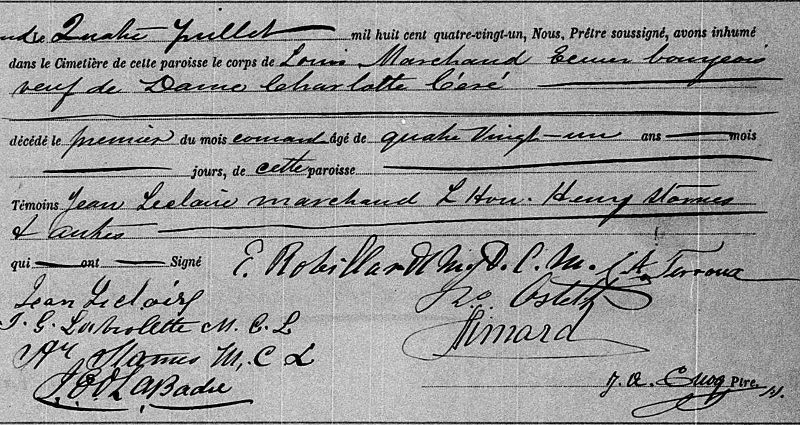 Quatre Juillet mil huit cent quatre-vingt-un, Nous, Prêtre soussigné, avons inhumé
dans le Cimetière de cette paroisse le corps de Louis Marchand Ecuier bourgeois
veuf de Dame Charlotte Céré
décédé le premier du mois courant âgé de quatre vingt-un ans mois
jours, de cette paroisse
Témoins Jean Leclaire marchand L'Hon. Henry Starnes
& autres
qui ont Signé E. Robillard
Jean Leclaire
Simard
M.C.L
M.C.L
LaBadie
J. A. Cuoq Ptre.